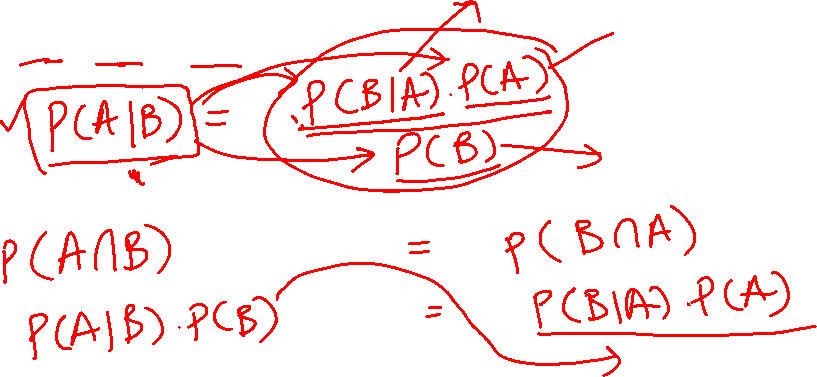 P(A|B) = P(B|A) . P(A)
P(B)
P(A∩B) = P(B∩A)
P(A|B) . P(B) = P(B|A) . P(A)